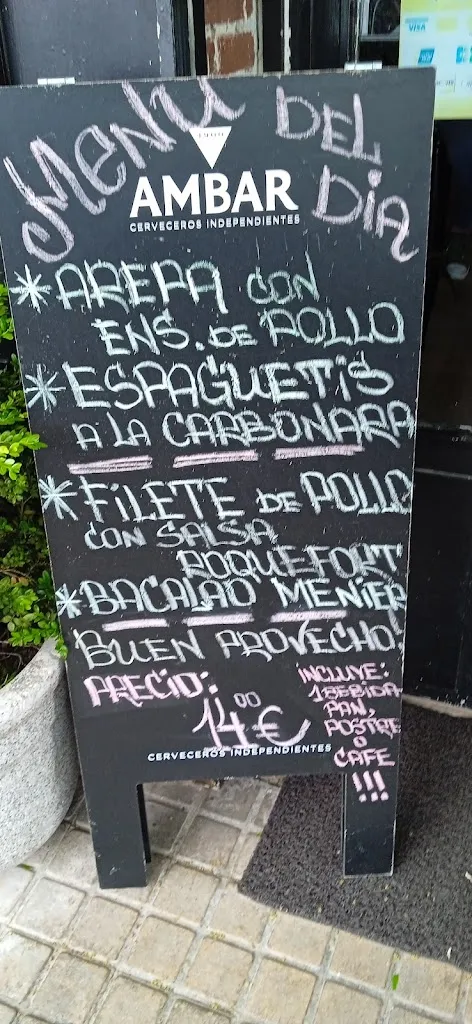 VISA
MENU DEL DIA
1900
AMBAR
CERVECEROS INDEPENDIENTES
* AREPA CON
ENS. DE POLLO
* ESPAGUETIS
A LA CARBONARA
* FILETE DE POLLO
CON SALSA
ROQUEFORT
* BACALAO MENIER
BUEN PROVECHO!
PRECIO:
14,00 €
INCLUYE:
1 BEBIDA
PAN,
POSTRE
O
CAFE
!!!
CERVECEROS INDEPENDIENTES